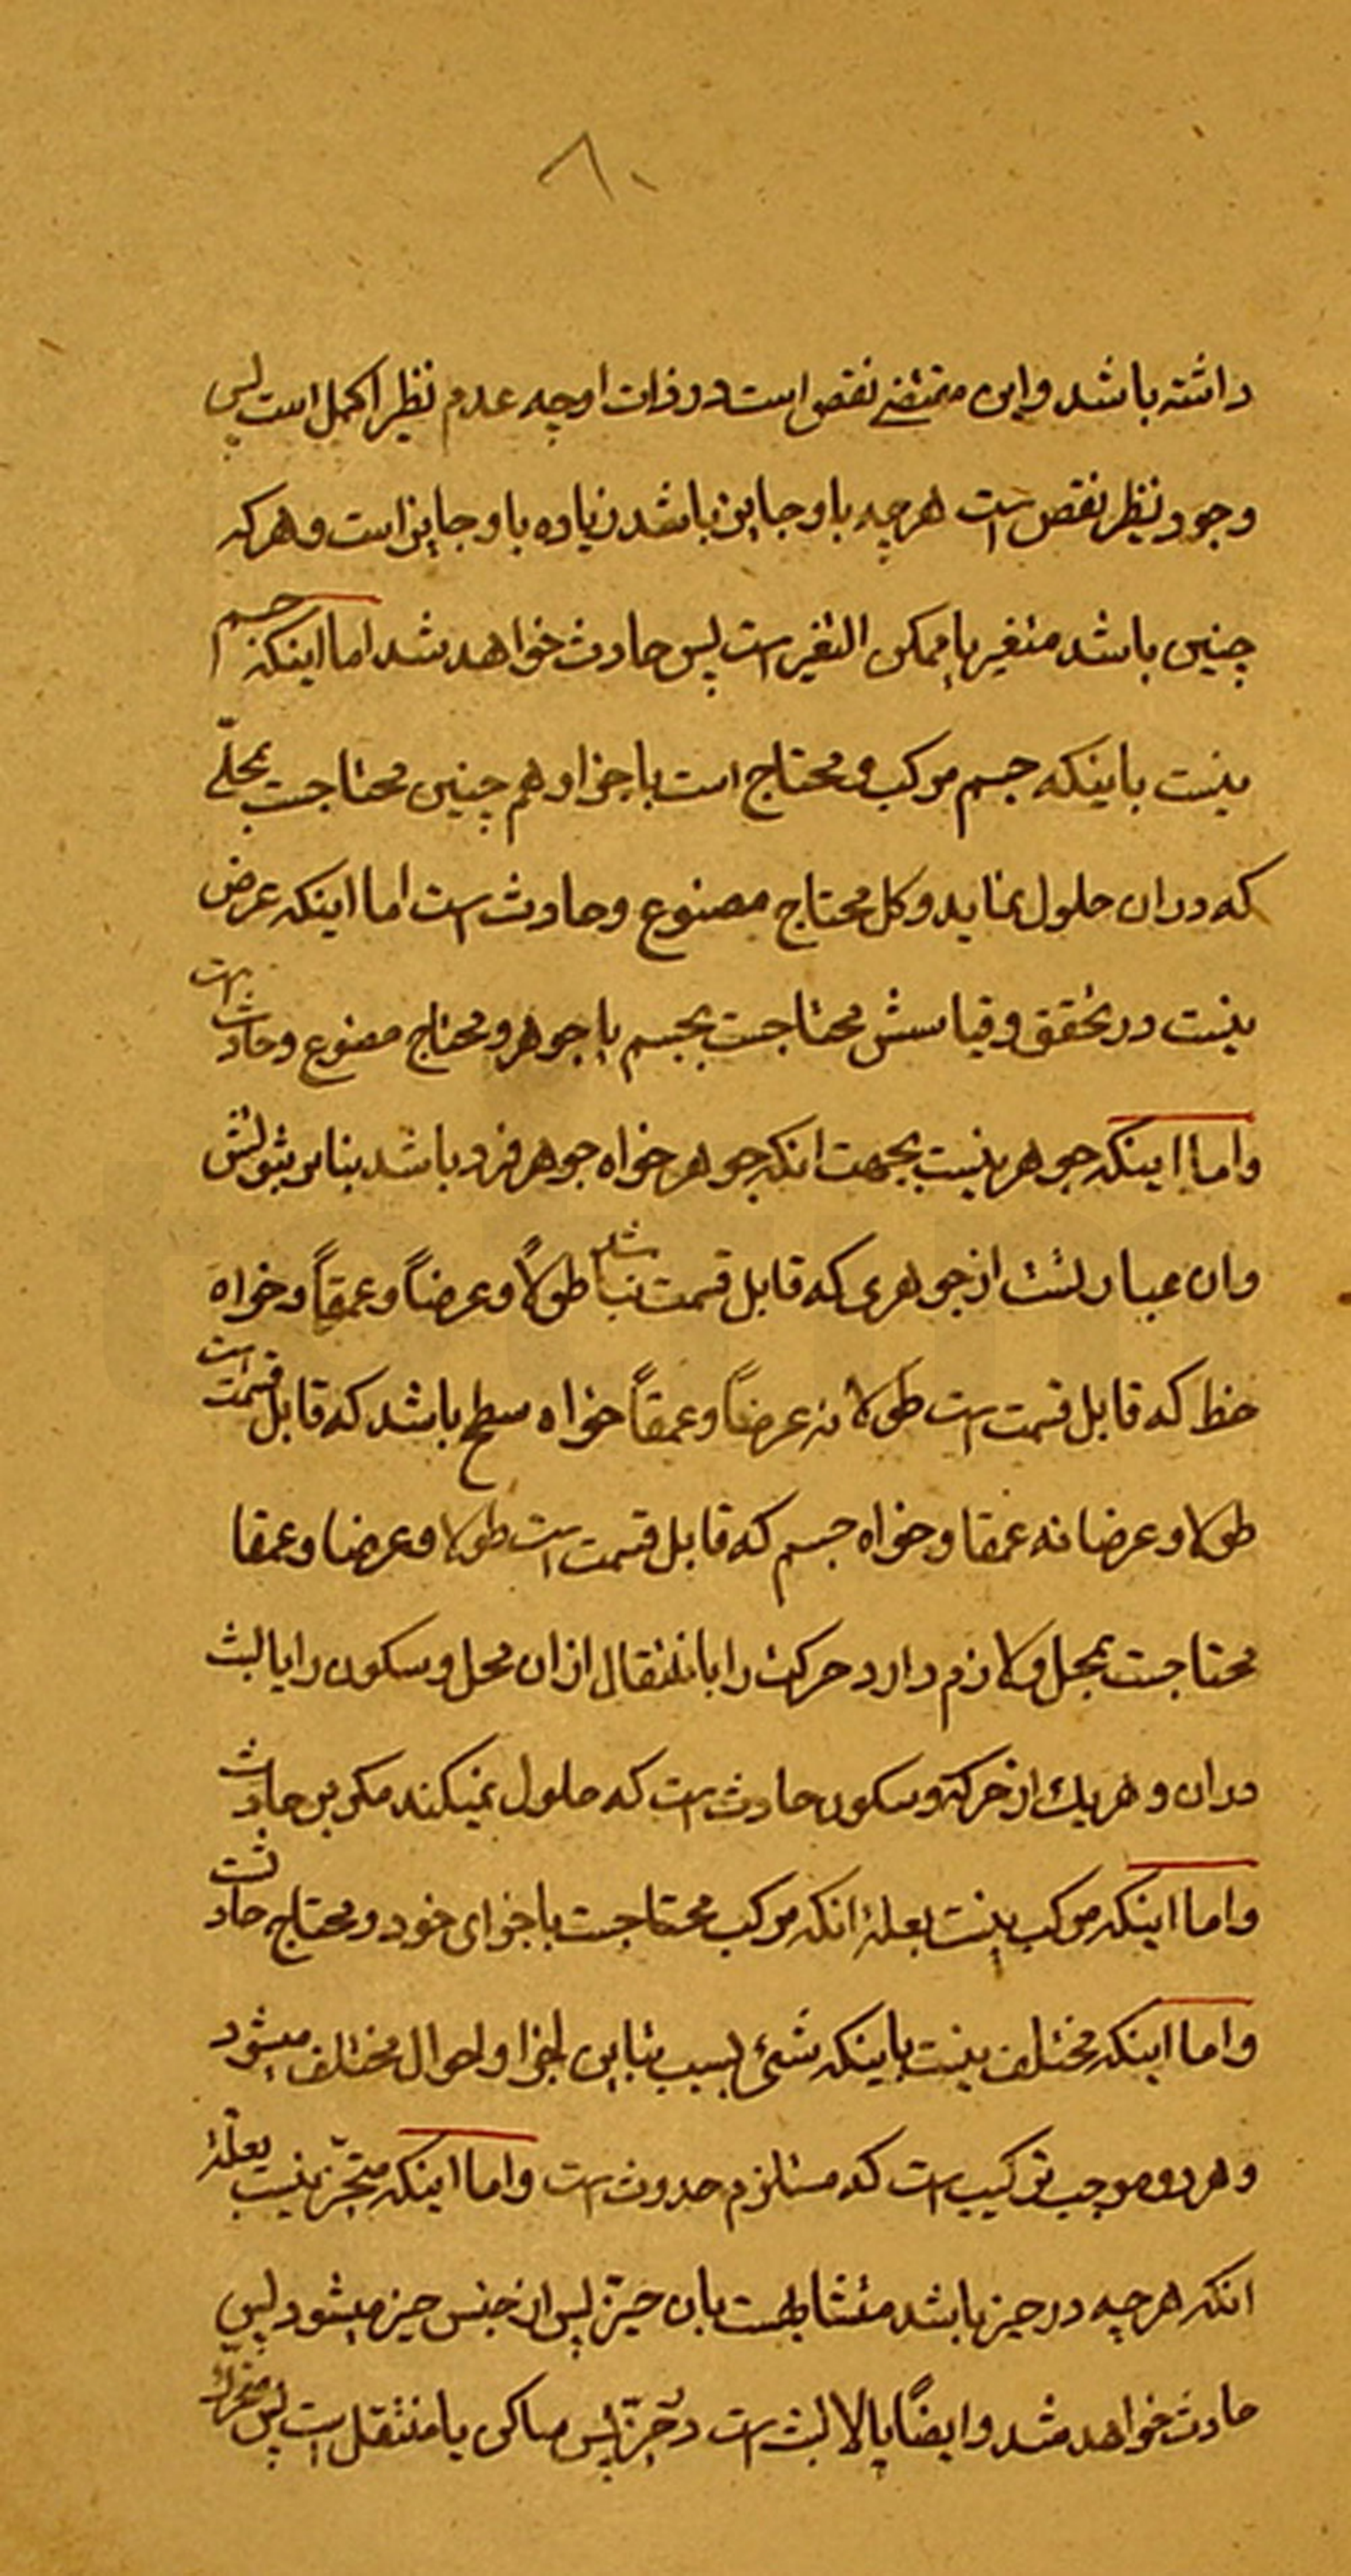 ۸۰
داشته باشد و این مقتضی نقص است در ذات او چه عدم نظیر اکمل است پس
وجود نظیر نقص است هرچه باو جایز باشد زیاده باو جایز است و هر که
چنین باشد متغیر یا ممکن التغیر است پس حادث خواهد شد اما اینکه جسم
نیست باینکه جسم مرکب و محتاج است باجزا و هم چنین محتاجست بمحلّی
که دران حلول نماید و کل محتاج مصنوع و حادث است اما اینکه عرض
نیست در تحقق و قیامش محتاجست بجسم یا جوهر و محتاج مصنوع و حادث
واما اینکه جوهر نیست بجهت انکه جوهر خواه جوهر فرد باشد بنابر ثبوتش
وان عبارتست از جوهری که قابل قسمت نباشد طولاً و عرضاً و عمقاً و خواه
خط که قابل قسمت است طولا نه عرضاً و عمقاً خواه سطح باشد که قابل قسمت است
طولا و عرضا نه عمقا و خواه جسم که قابل قسمت است طولا و عرضا و عمقا
محتاجست بمحل و لازم دارد حرکت را بانتقال ازان محل و سکون را یا لبث
دران و هریك از حرکة و سکون حادث است که حلول نمیکند مکر بر حادث
واما اینکه مرکب نیست بعلة انکه مرکب محتاجست باجزای خود و محتاج حادثست
واما اینکه مختلف نیست باینکه شئ بسبب تباین اجزا و احوال مختلف میشود
و هر دو موجب ترکیب است که مستلزم حدوث است واما اینکه متحیّز نیست بعلّة
انکه هرچه در حیز باشد متشابهست بان حیّز پس از جنس حیز میشود پس
حادث خواهد شد و ایضاً یا لابث است در حیّز پس ساکن یا منتقل است پس متحرّك